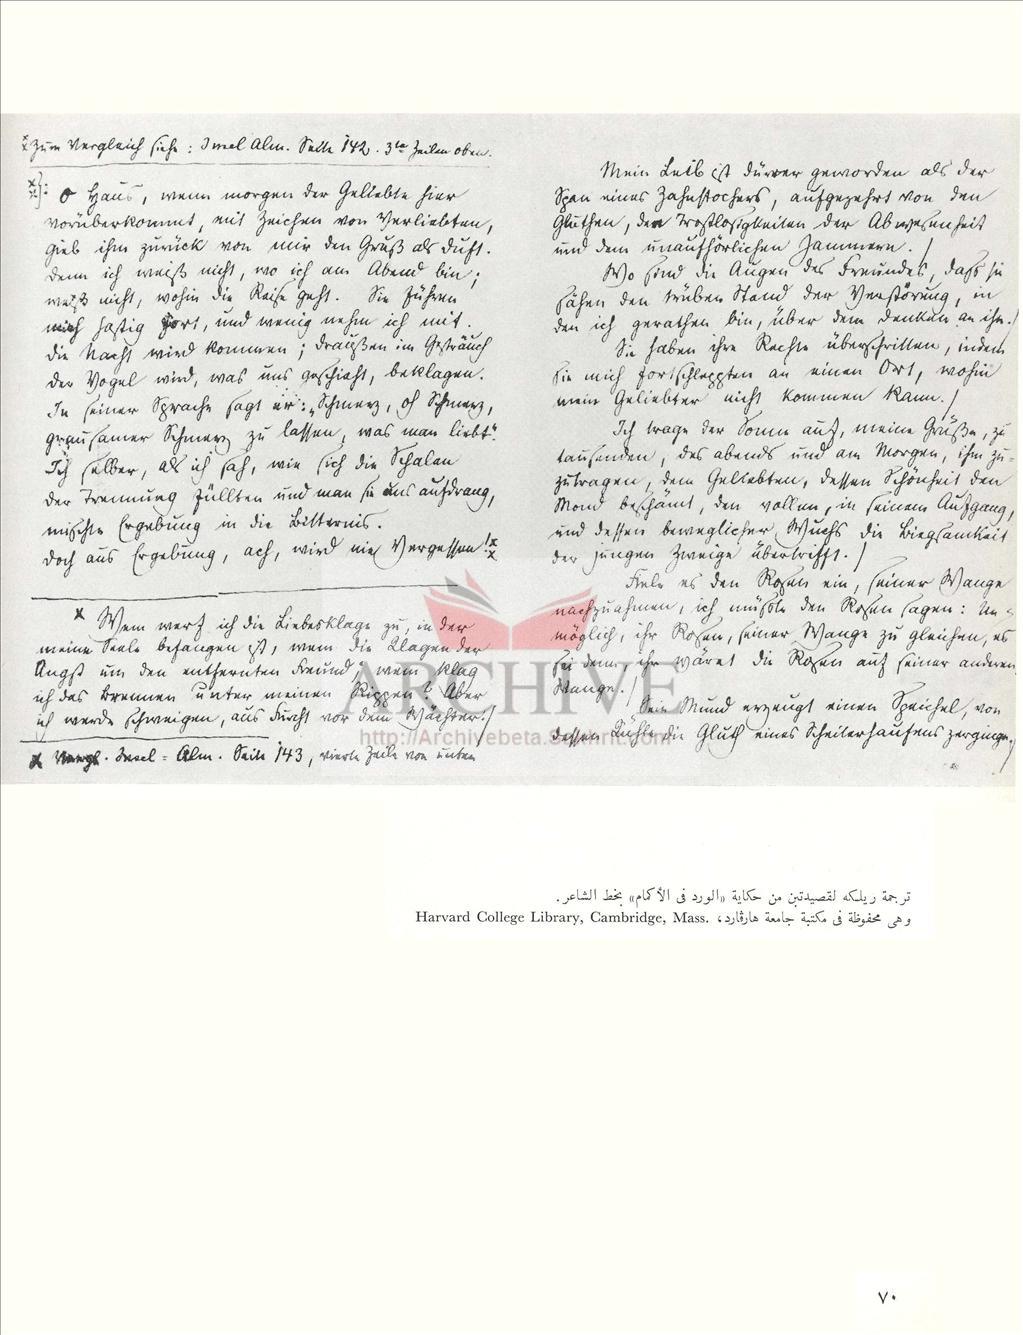 x Zum Vergleich siehe: Insel Alm. Seite 142. 3te Zeile v. oben.
x}: O Haus, wenn morgen der Geliebte hier
vorüberkommt, mit Zeichen von Verliebten,
gieb ihm zurück von mir den Gruß als Duft.
Denn ich weiß nicht, wo ich am Abend bin;
weiß nicht, wohin die Reise geht. Sie führen
mich hastig fort, und wenig nehm ich mit.
Die Nacht wird kommen; draußen im Gesträuch
der Vogel wird, was uns geschieht, beklagen.
In seiner Sprache sagt er: „Schmerz, oh Schmerz,
grausamer Schmerz zu lassen, was man liebt“.
Ich selber, als ich sah, wie sich die Schalen
der Trennung füllten und man sie uns aufdrang,
mischte Ergebung in die Bitternis.
Doch aus Ergebung, ach, wird nie Vergessen! x
x Wem werf ich die Liebesklage zu, in der
meine Seele befangen ist, wem die Klagen der
Angst um den entfernten Freund, wem klag
ich das Brennen unter meinen Rippen? Aber
ich werde schweigen, aus Furcht vor dem Wächter./
x Vergl. Insel-Alm. Seite 143, vierte Zeile von unten
Mein Leib ist dürrer geworden als der
Span eines Zahnstochers, aufgezehrt von den
Gluthen, den Trostlosigkeiten der Abwesenheit
und dem unaufhörlichen Jammern./
Wo sind die Augen des Freundes, dass sie
sähen den trüben Stand der Verstörung, in
den ich gerathen bin, über dem Denken an ihn./
Sie haben ihre Rechte überschritten, indem
sie mich fortschleppten an einen Ort, wohin
mein Geliebter nicht kommen kann./
Ich trage der Sonne auf, meine Grüße, zu
tausenden, des abends und am Morgen, ihm zu-
zutragen, dem Geliebten, dessen Schönheit den
Mond beschämt, den vollen, in seinem Aufgang,
und dessen beweglicher Wuchs die Biegsamkeit
der jungen Zweige übertrifft./
Fiele es den Rosen ein, seiner Wange
nachzuahmen, ich müßte den Rosen sagen: Un-
möglich, ihr Rosen, seiner Wange zu gleichen, es
sei denn, ihr wäret die Rosen auf seiner anderen
Wange./
Sein Mund erzeugt einen Speichel, von
dessen Kühle die Gluth eines Scheiterhaufens zerginge./
ARCHIVE
http://Archivebeta.Sakhrit.com
ترجمة ريلكه لقصيدتين من حكاية «الورد فى الأكمام» بخط الشاعر.
وهى محفوظة فى مكتبة جامعة هارڤارد، Harvard College Library, Cambridge, Mass.
٧٠